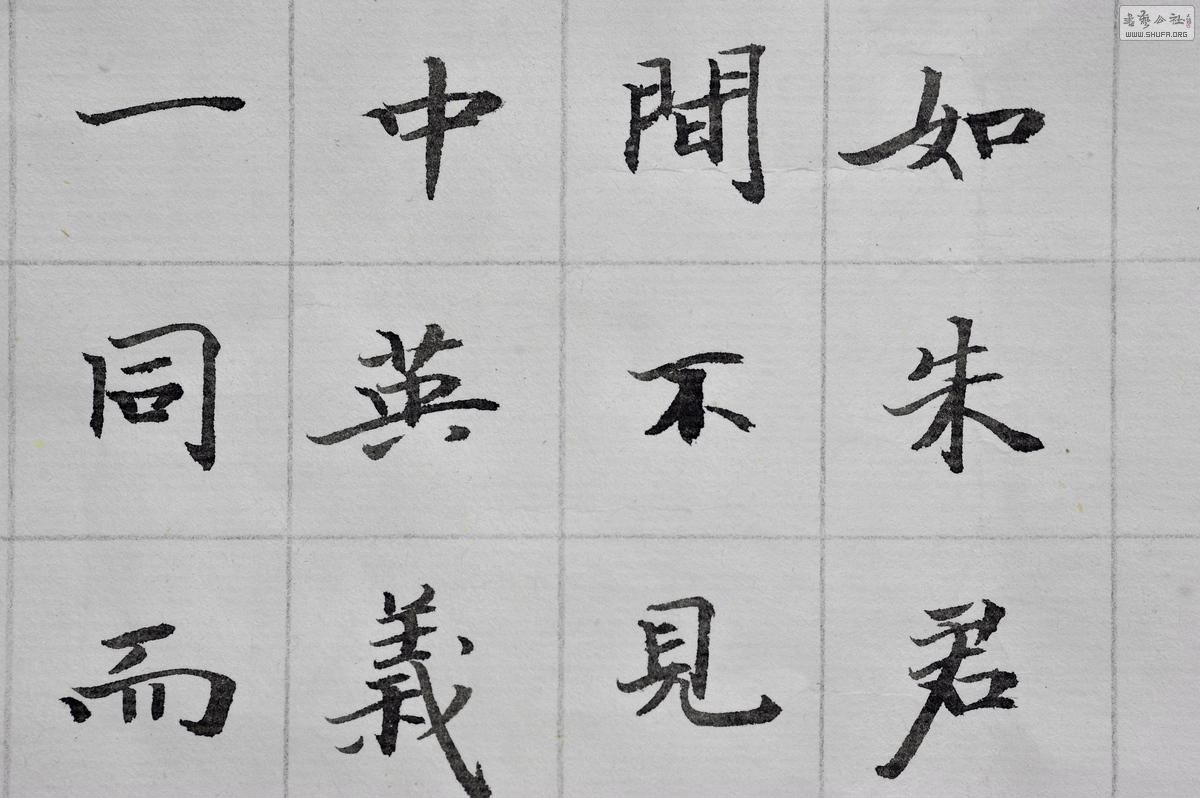 如朱君
間不見
中英義
一同而
書藝公社
WWW.SHUFA.ORG